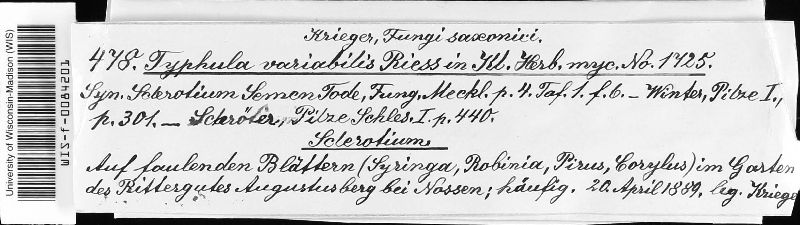 University of Wisconsin-Madison (WIS)
WIS-f-0084201
Krieger, Fungi saxonici.
478. Typhula variabilis Riess in Kl. Herb. myc. No. 1725.
Syn. Sclerotium Semen Tode, Fung. Meckl. p. 4. Taf. 1. f. 6. — Winter, Pilze I.,
p. 301. — Schröter, Pilze Schles. I. p. 440.
Sclerotium.
Auf faulenden Blättern (Syringa, Robinia, Pirus, Corylus) im Garten
des Rittergutes Augustusberg bei Nossen; häufig. 20. April 1889. leg. Kriege